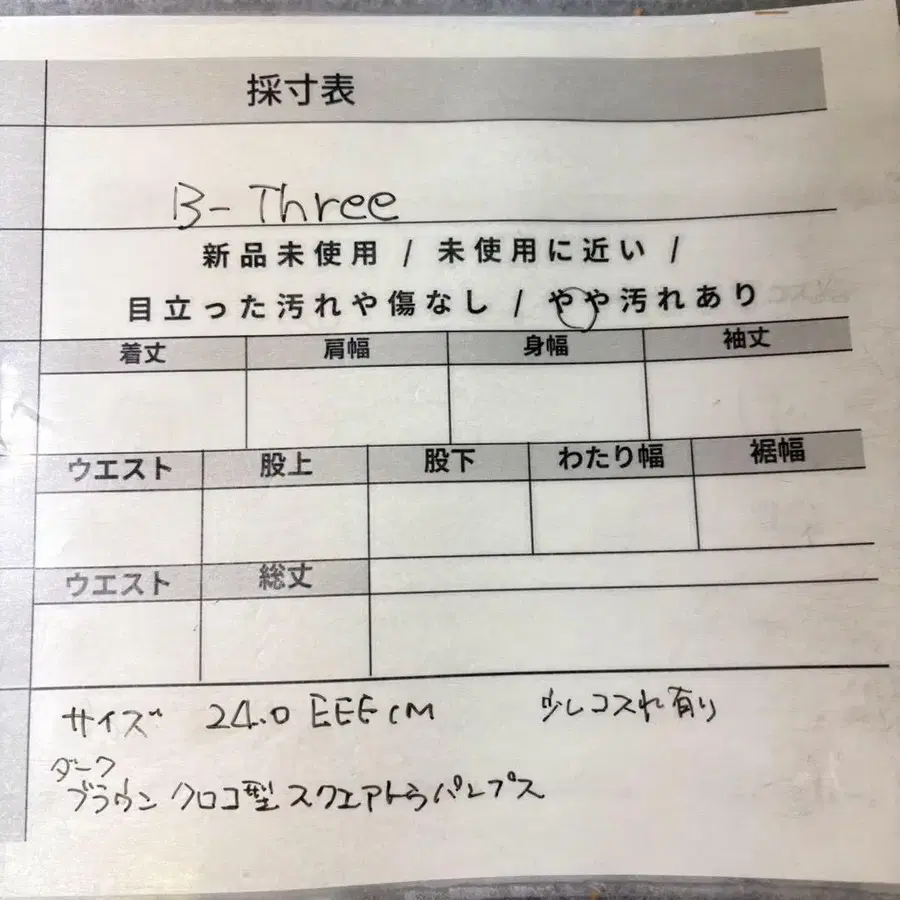 採寸表
B-Three
新品未使用 / 未使用に近い /
目立った汚れや傷なし / やや汚れあり
着丈 肩幅 身幅 袖丈
ウエスト 股上 股下 わたり幅 裾幅
ウエスト 総丈
サイズ 24.0 EEE cM 少しコスれ有り
ダーク
ブラウン クロコ型 スクエアトゥパンプス